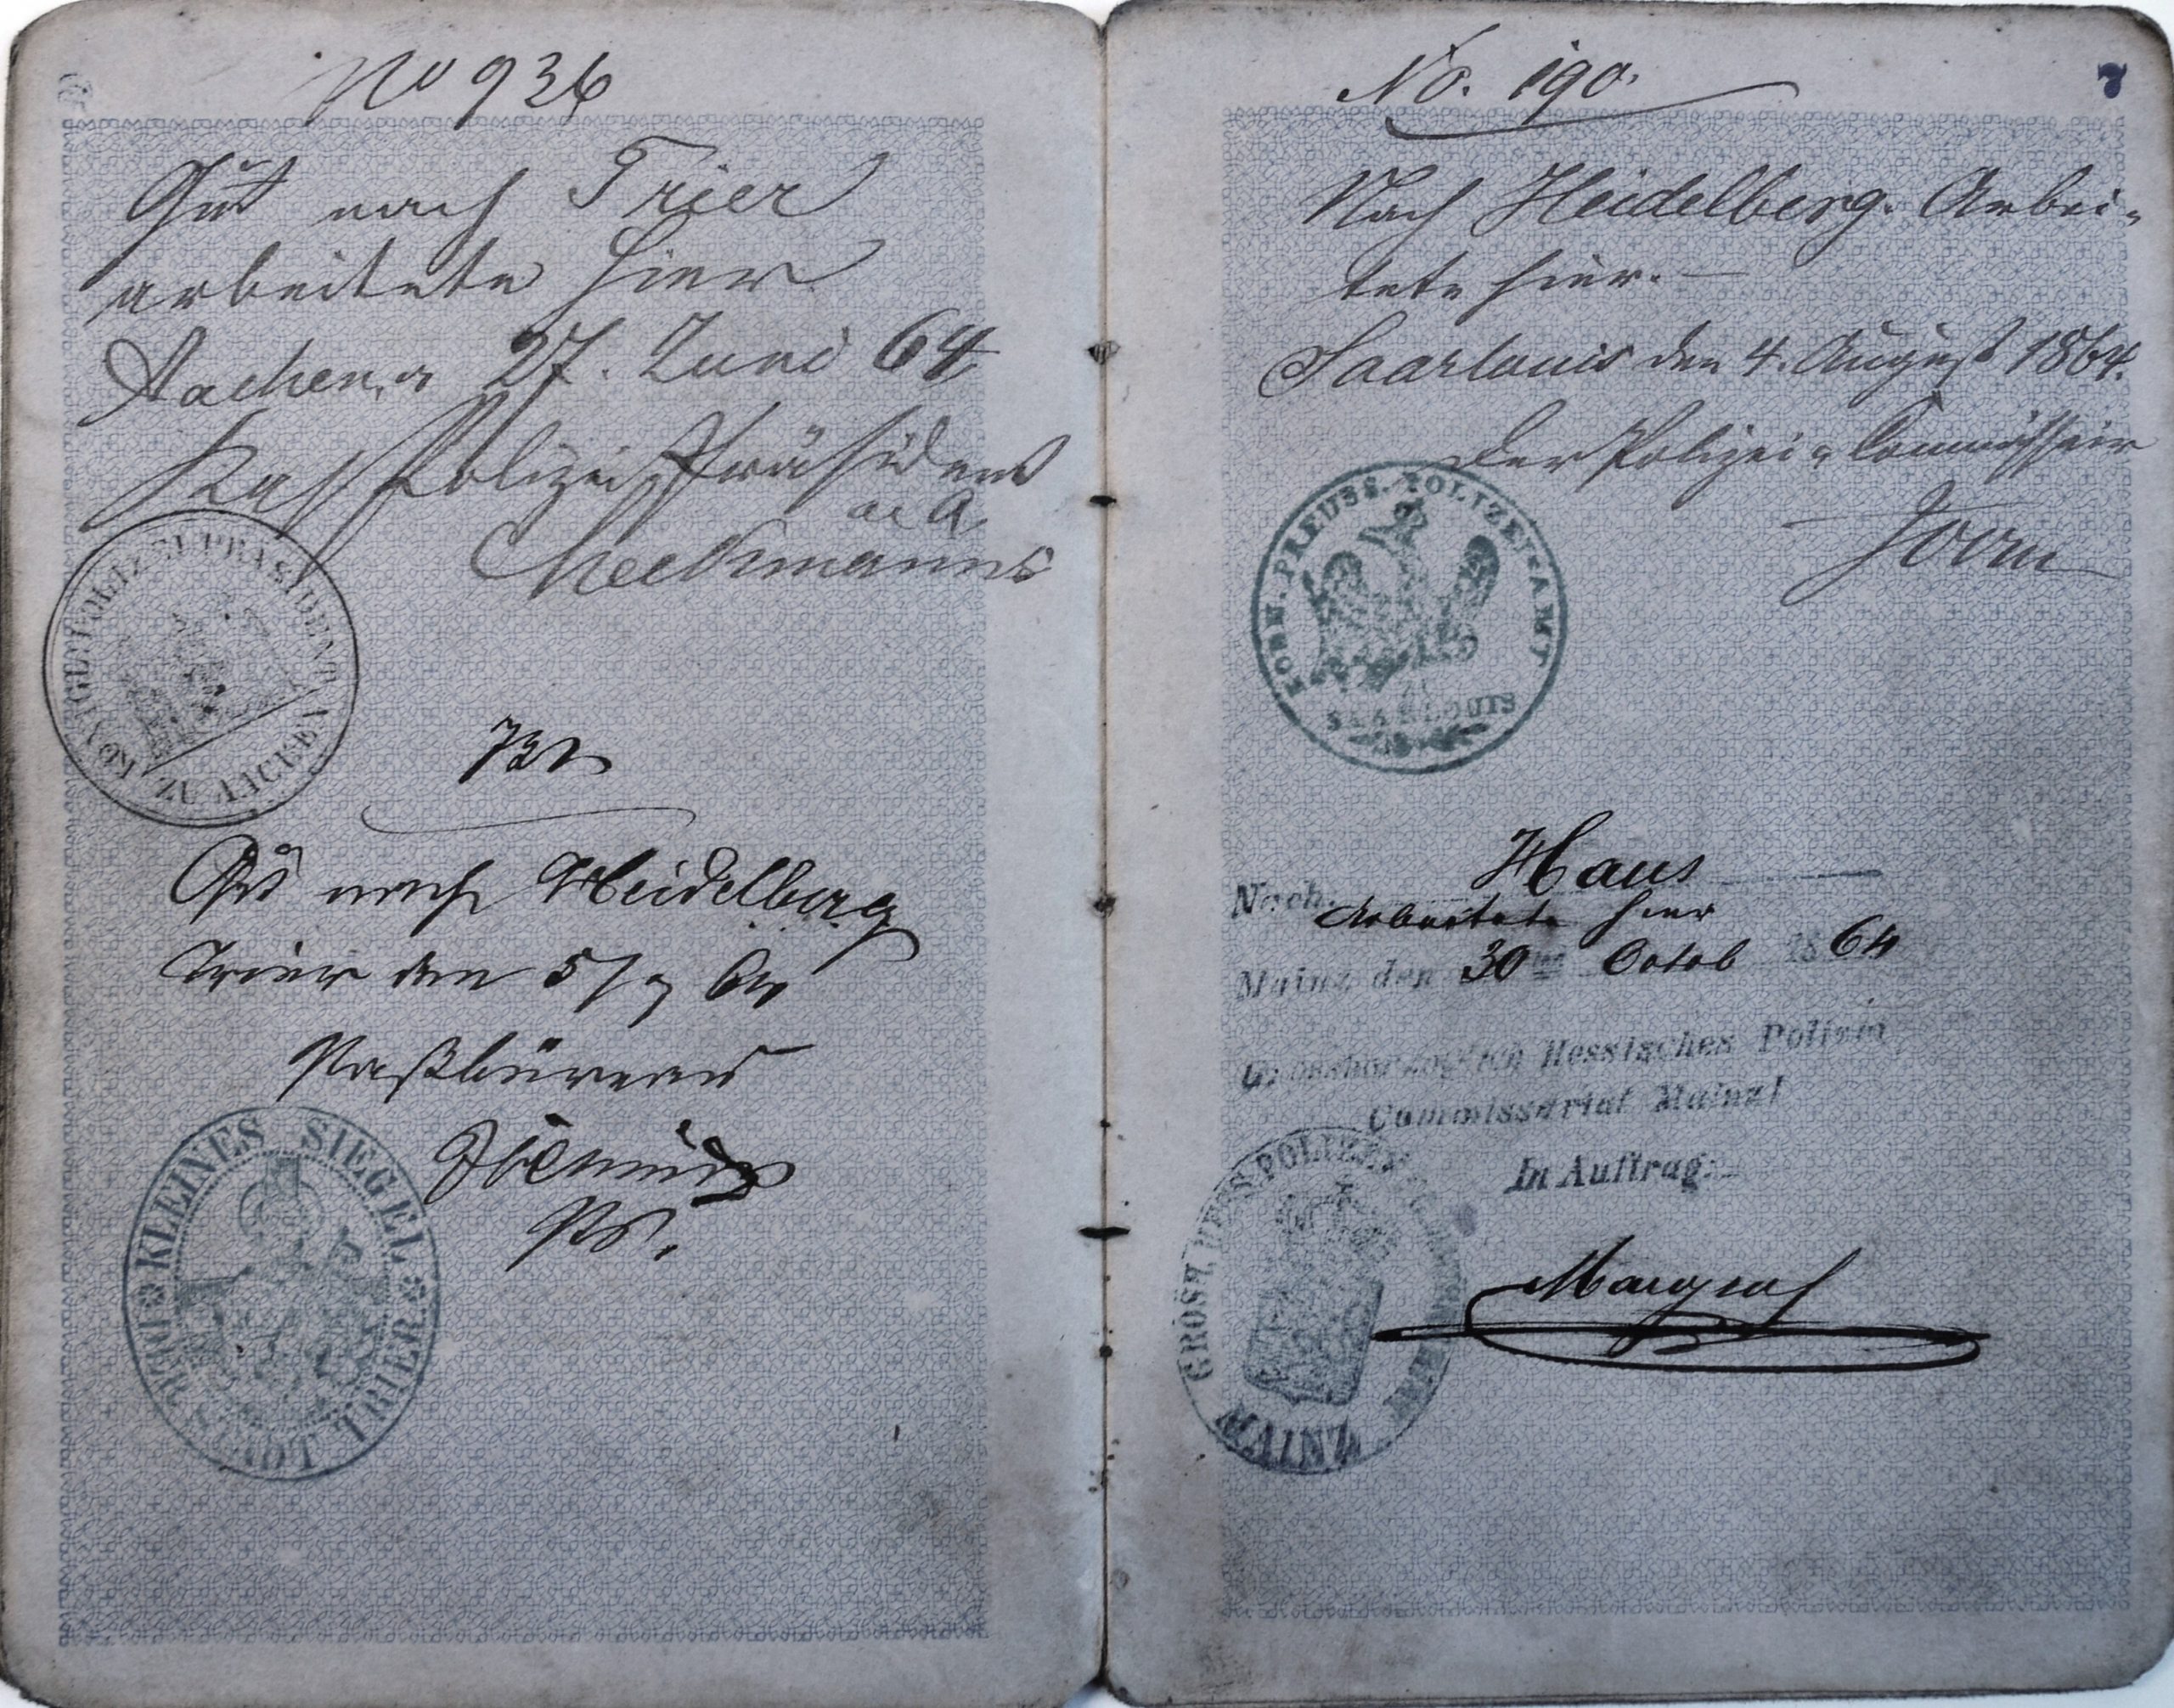 No 936
Gut nach Trier
arbeitete hier
Aachen, 27. Juni 64
Polizei Präsident
KÖNIGL. POLIZEI PRÄSIDENT
ZU AACHEN
Gut nach Heidelberg
Trier den 5/7 64
Paßbüreau
KLEINES SIEGEL
TRIER
7
No. 190.
Nach Heidelberg. Arbei-
tete hier.
Saarlouis den 4. August 1864.
Der Polizei-Commissair
KOEN. PREUSS. POLIZEI-AMT
SAARLOUIS
Nach Haus
Arbeitete hier
Mainz den 30ten Octob 1864
Grossherzoglich Hessisches Polizei
Commissariat Mainz
In Auftrag:
Margraf
GROSH. HESS. POLIZEI
MAINZ